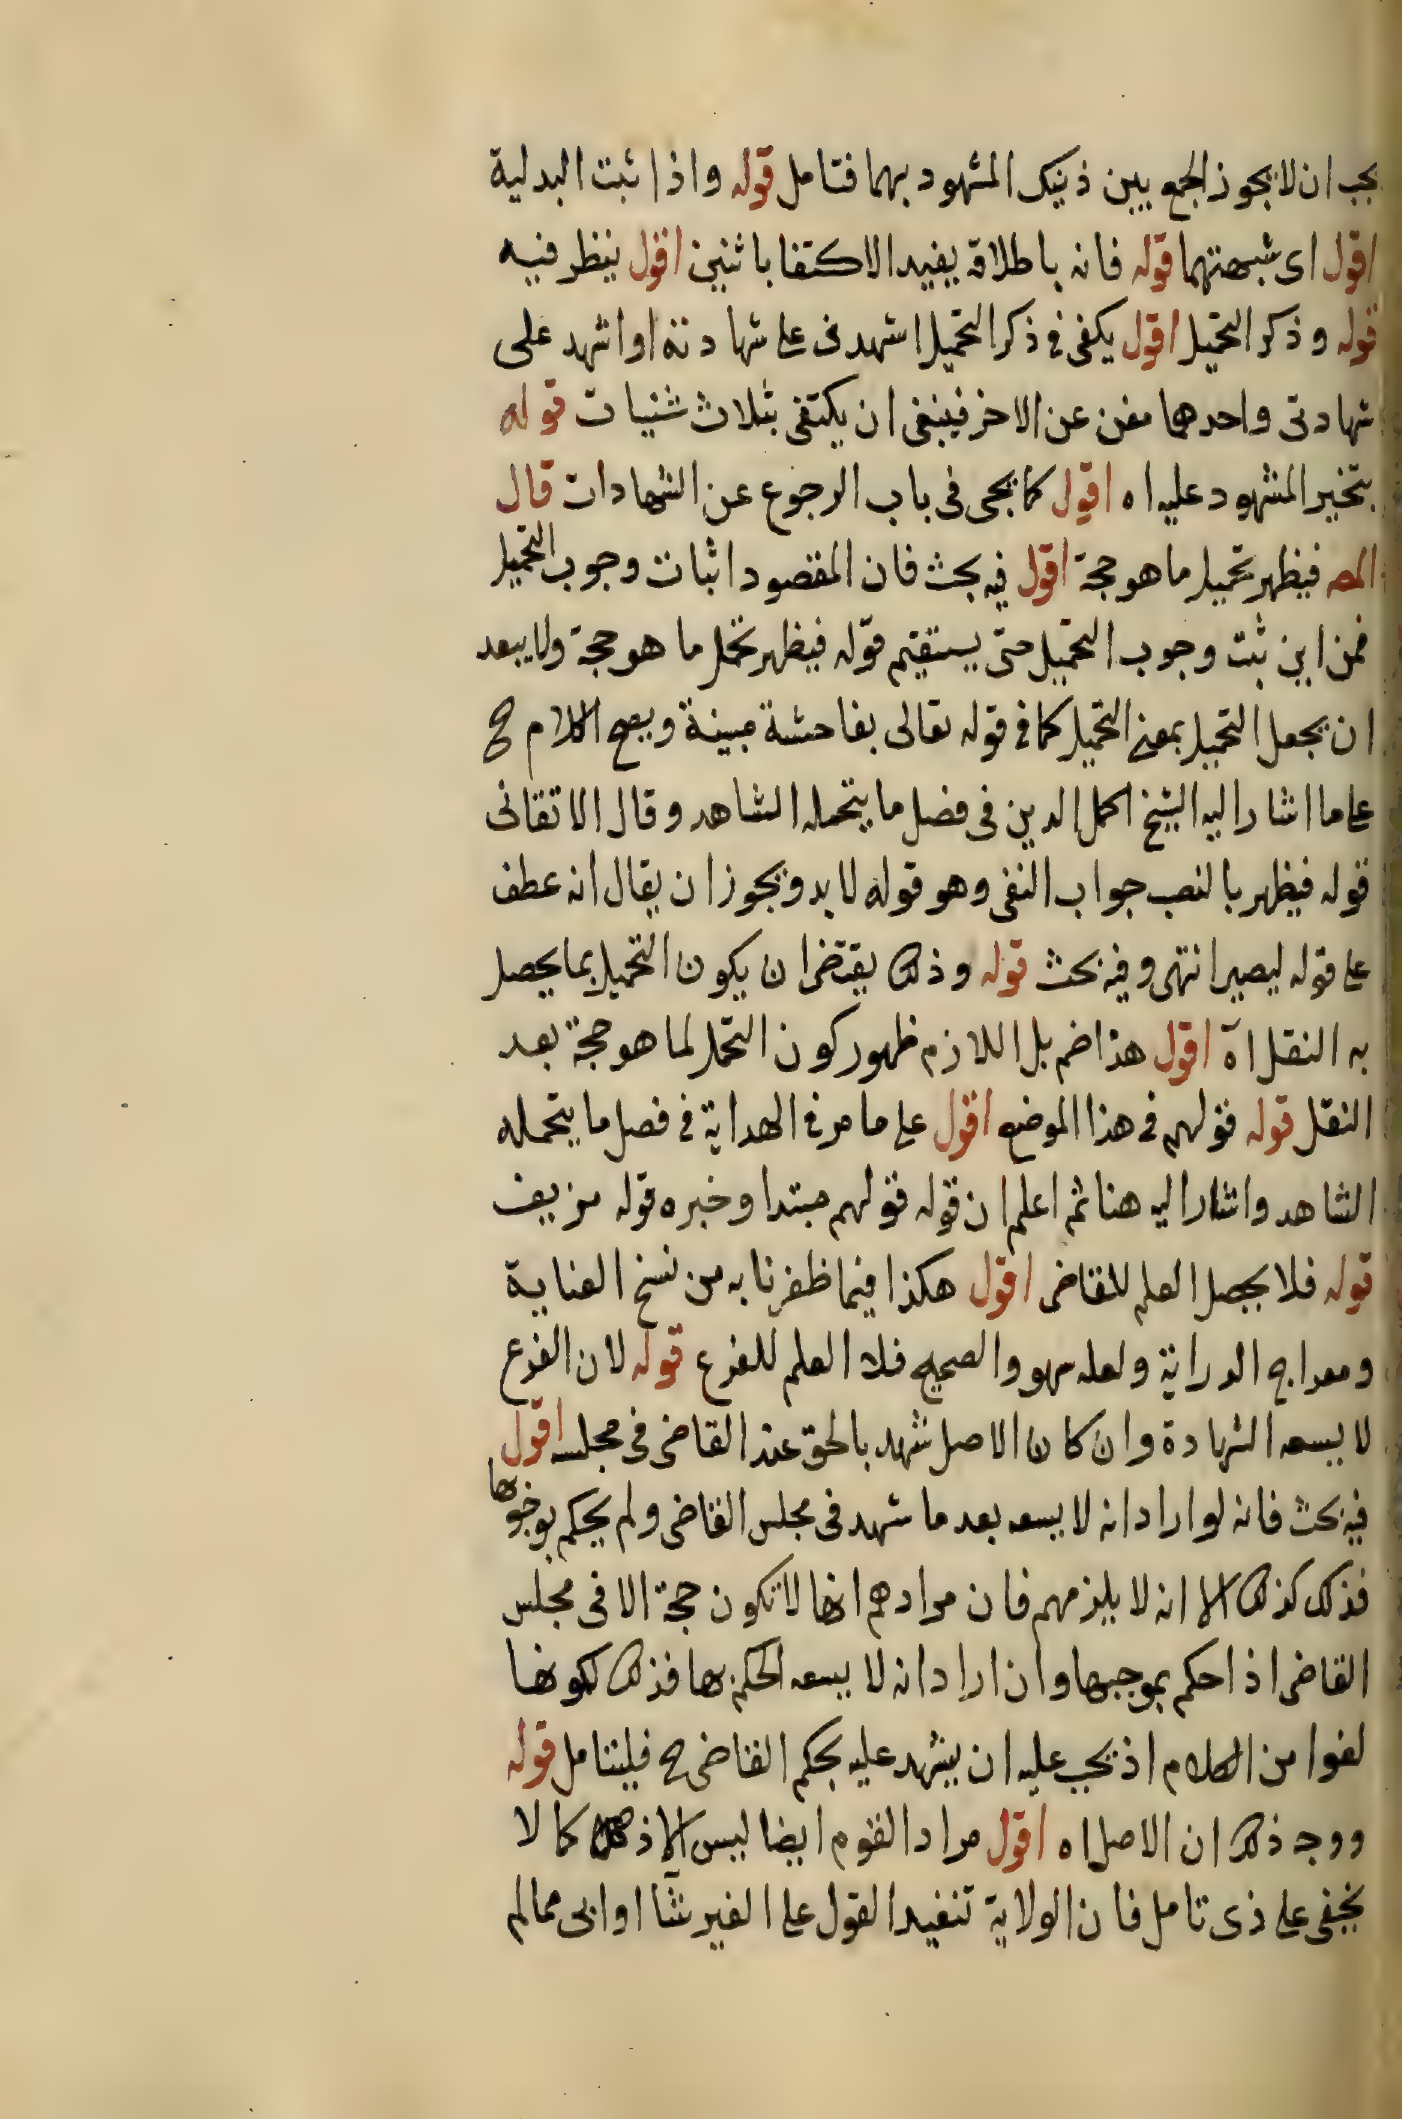 يجب ان لا يجوز الجمع بين ذينك المشهود بهما فتامل قوله واذا ثبتت البدلية
اقول اى شبهتهما قوله فانه باطلاقه يفيد الاكتفا باثنين اقول ينظر فيه
قوله وذكر التحميل اقول يكفى فى ذكر التحميل اشهدنى على شهادته او اشهد على
شهادتى واحدهما مغن عن الاخر فينبغى ان يكتفى بثلاث شنيات قوله
بتخير المشهود عليه اه اقول كما يجى فى باب الرجوع عن الشهادات قال
المص فيظهر تحميل ما هو حجة اقول فيه بحث فان المقصود اثبات وجوب التحميل
فمن اين ثبت وجوب التحميل حتى يستقيم قوله فيظهر تحمل ما هو حجة ولا يبعد
ان يجعل التحميل بمعنى التحميل كما فى قوله تعالى بفاحشة مبينة ويصح الكلام ح
على ما اشار اليه الشيخ اكمل الدين فى فصل ما يتحمله الشاهد وقال الاتقانى
قوله فيظهر بالنصب جواب النفى وهو قوله لا بد ويجوز ان يقال انه عطف
على قوله ليصير انتهى وفيه بحث قوله وذلك يقتضى ان يكون التحميل بما يحصل
به النقل اه اقول هذا ضم بل اللازم ظهور كون التحمل لما هو حجة بعد
النقل قوله قولهم فى هذا الموضع اقول على ما مر فى الهداية فى فصل ما يتحمله
الشاهد واشار اليه هنا ثم اعلم ان قوله قولهم مبتدا وخبره قوله مزيف
قوله فلا يحصل العلم للقاضى اقول هكذا فيما ظفرنا به من نسخ العناية
ومعراج الدراية ولعله سهو والصحيح فلا العلم للفرع قوله لان الفرع
لا يسعه الشهادة وان كان الاصل شهد بالحق عند القاضى فى مجلسه اقول
فيه بحث فانه لو اراد انه لا يسعه بعد ما شهد فى مجلس القاضى ولم يحكم بوجوبها
فذلك كذلك الا انه لا يلزمهم فان مرادهم انها لا تكون حجة الا فى مجلس
القاضى اذا حكم بموجبها وان اراد انه لا يسعه الحكم بها فذلك لكونها
لغوا من الكلام اذ يجب عليه ان يشهد عليه بحكم القاضى ح فليتامل قوله
ووجه ذلك ان الاصل اه اقول مراد القوم ايضا ليس الا ذلك كما لا
يخفى على ذى تامل فان الولاية تنفيد القول على الغير شا او ابى مما لم